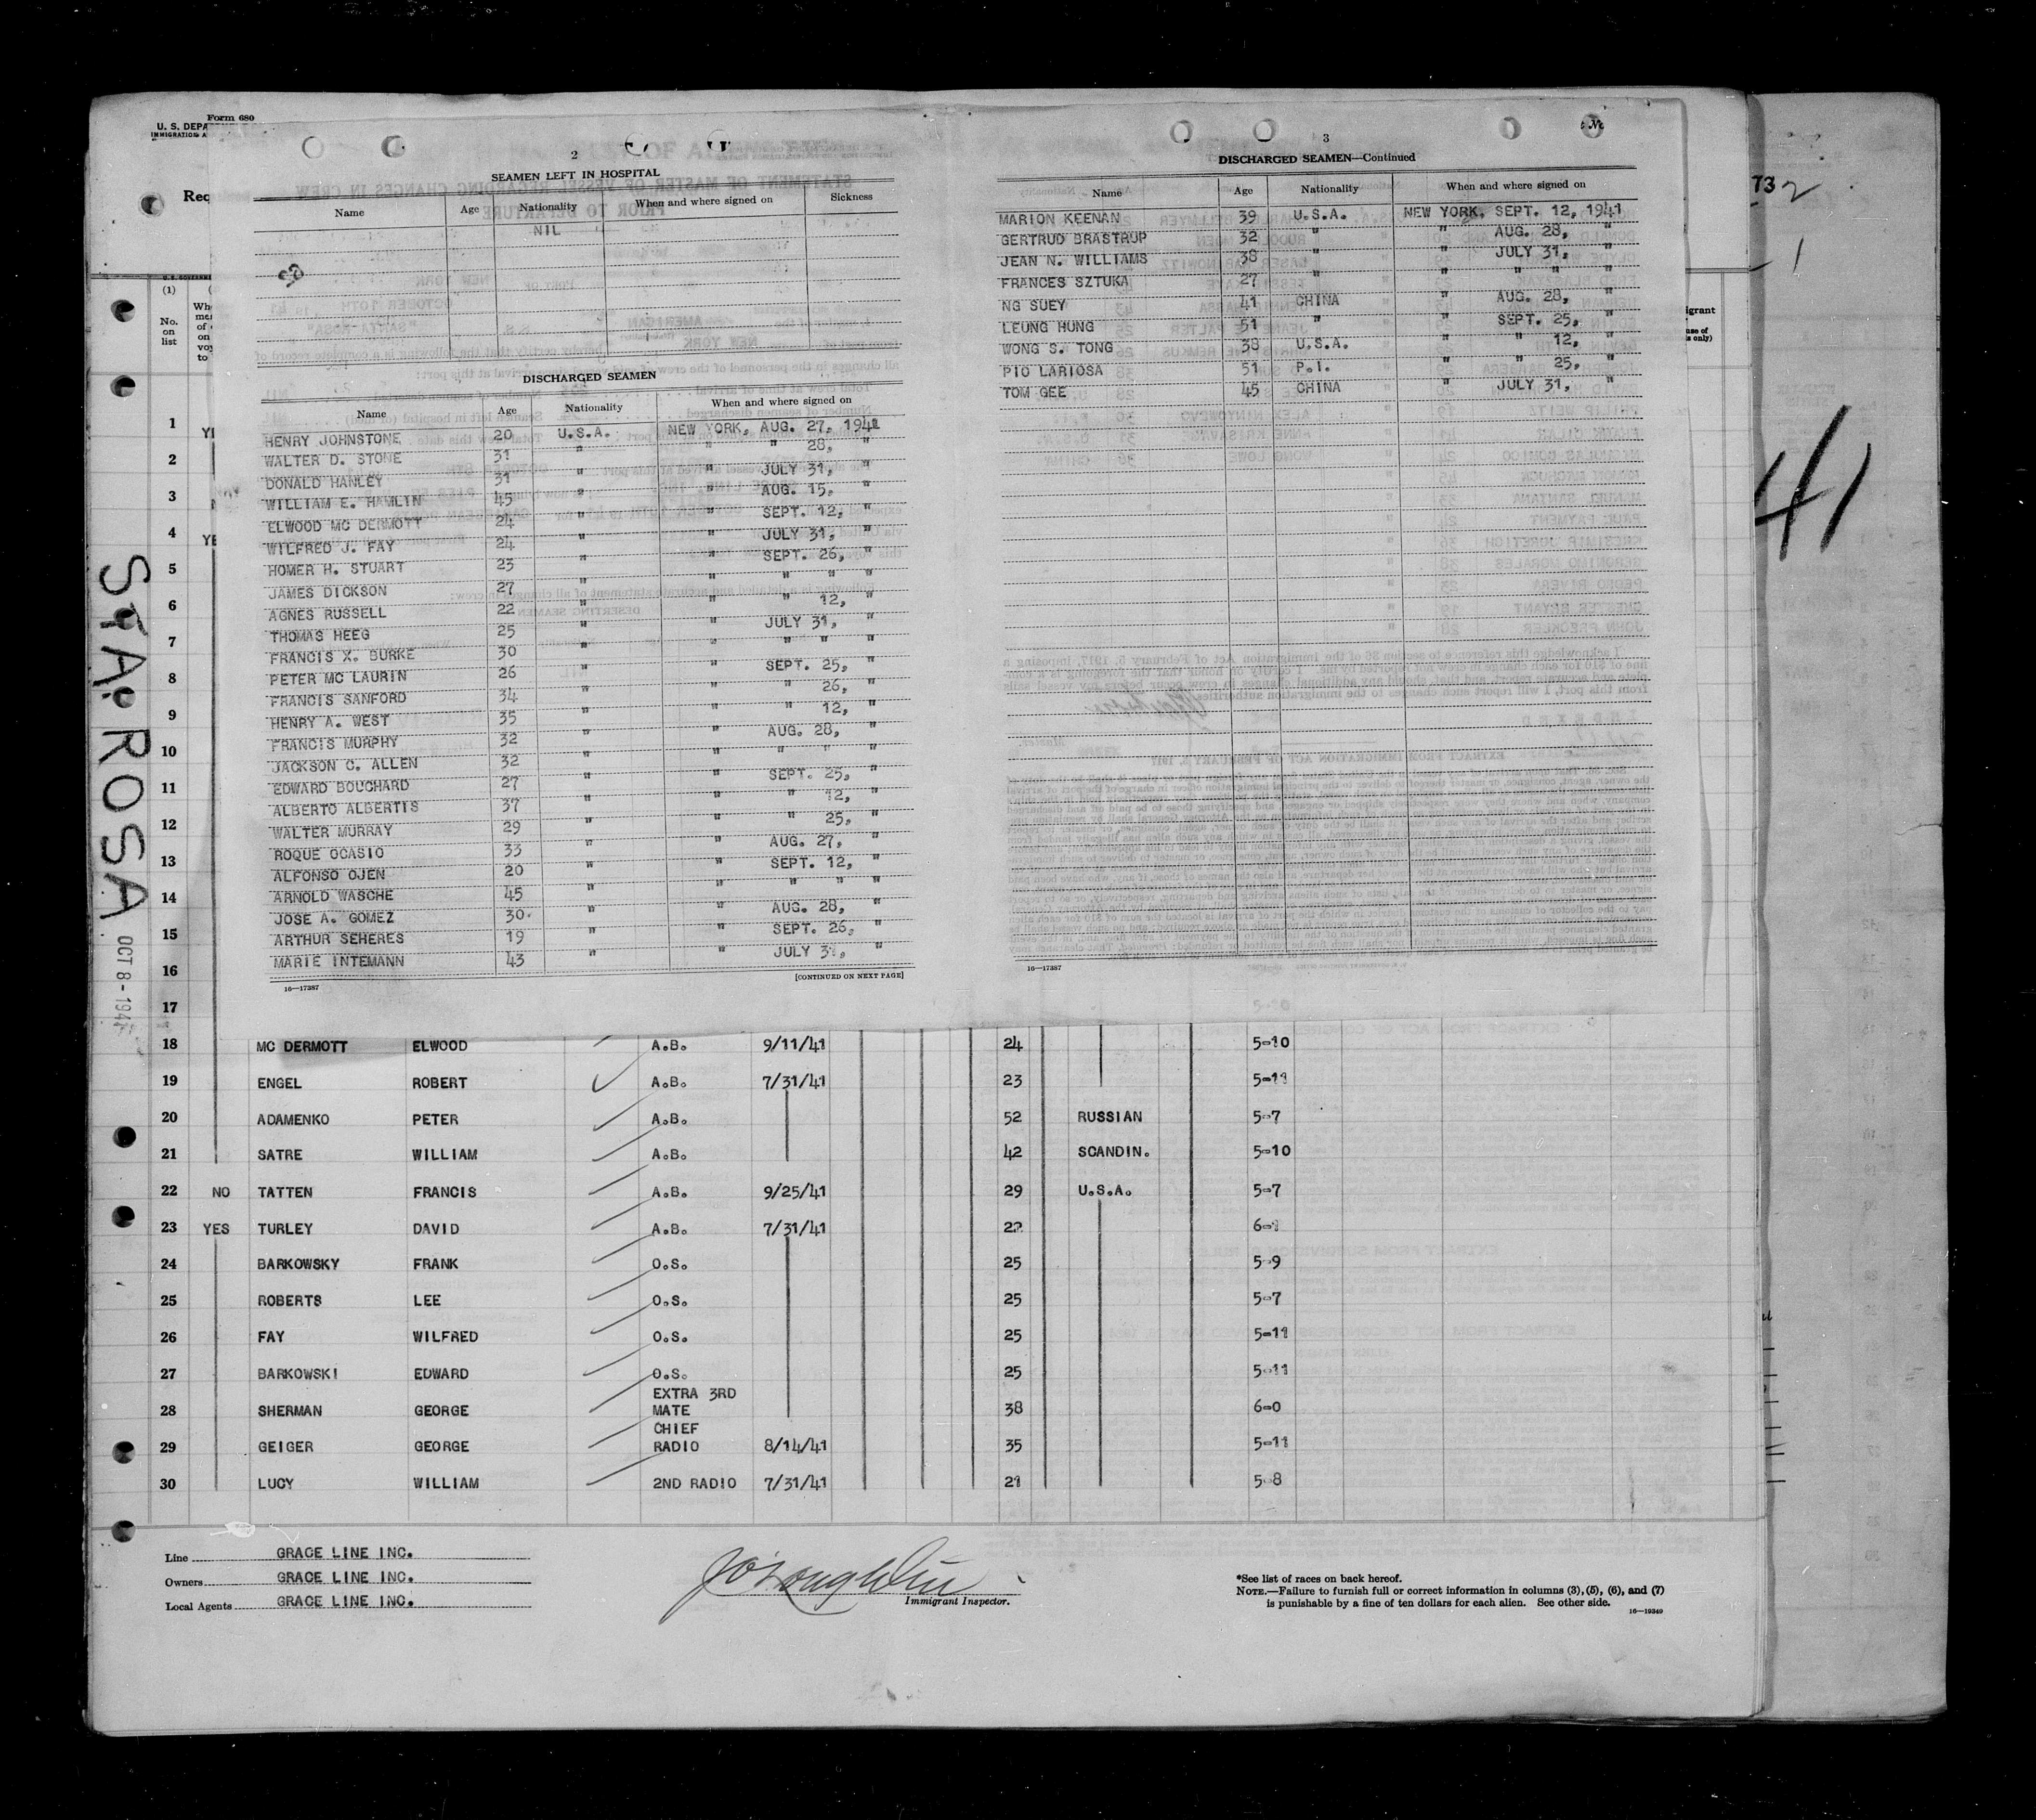 Form 680
U. S. DEPA
IMMIGRATION A
Req
2
SEAMEN LEFT IN HOSPITAL
Name Age Nationality When and where signed on Sickness
NIL
DISCHARGED SEAMEN
Name Age Nationality When and where signed on
HENRY JOHNSTONE 20 U.S.A. NEW YORK, AUG. 27, 1941
WALTER D. STONE 31 " " 28, "
DONALD HANLEY 31 " " JULY 31, "
WILLIAM E. HAMLIN 45 " " AUG. 15, "
ELWOOD MC DERMOTT 24 " " SEPT. 12, "
WILFRED J. FAY 24 " " JULY 31, "
HOMER H. STUART 23 " " SEPT. 26, "
JAMES DICKSON 27 " " " " "
AGNES RUSSELL 22 " " " 12, "
THOMAS HEEG 25 " " JULY 31, "
FRANCIS X. BURKE 30 " " " " "
PETER MC LAURIN 26 " " SEPT. 25, "
FRANCIS SANFORD 34 " " " 26, "
HENRY A. WEST 35 " " " 12, "
FRANCIS MURPHY 32 " " AUG. 28, "
JACKSON C. ALLEN 32 " " " " "
EDWARD BOUCHARD 27 " " SEPT. 25, "
ALBERTO ALBERTIS 37 " " " 12, "
WALTER MURRAY 29 " " " 25, "
ROQUE OCASIO 33 " " AUG. 27, "
ALFONSO OJEN 20 " " SEPT. 12, "
ARNOLD WASCHE 45 " " " " "
JOSE A. GOMEZ 30 " " AUG. 28, "
ARTHUR SEHERES 19 " " SEPT. 26, "
MARIE INTEMANN 43 " " JULY 31, "
[CONTINUED ON NEXT PAGE]
16—17387
3
DISCHARGED SEAMEN—Continued
Name Age Nationality When and where signed on
MARION KEENAN 39 U.S.A. NEW YORK, SEPT. 12, 1941
GERTRUD BRASTRUP 32 " " AUG. 28, "
JEAN N. WILLIAMS 38 " " JULY 31, "
FRANCES SZTUKA 27 " " " " "
NG SUEY 41 CHINA " AUG. 28, "
LEUNG HUNG 51 " " SEPT. 25, "
WONG S. TONG 38 U.S.A. " " 12, "
PIO LARIOSA 51 P.I. " " 25, "
TOM GEE 45 CHINA " JULY 31, "
16—17387
73
2
1
41
STA. ROSA
OCT 8 - 1941
(1)
No.
on
list
1
2
3
4
5
6
7
8
9
10
11
12
13
14
15
16
17
18 MC DERMOTT ELWOOD A.B. 9/11/41 24 5-10
19 ENGEL ROBERT A.B. 7/31/41 23 5-11
20 ADAMENKO PETER A.B. 52 RUSSIAN 5-7
21 SATRE WILLIAM A.B. 42 SCANDIN. 5-10
22 NO TATTEN FRANCIS A.B. 9/25/41 29 U.S.A. 5-7
23 YES TURLEY DAVID A.B. 7/31/41 22 6-1
24 BARKOWSKY FRANK O.S. 25 5-9
25 ROBERTS LEE O.S. 25 5-7
26 FAY WILFRED O.S. 25 5-11
27 BARKOWSKI EDWARD O.S. 25 5-11
28 SHERMAN GEORGE EXTRA 3RD MATE 38 6-0
29 GEIGER GEORGE CHIEF RADIO 8/14/41 35 5-11
30 LUCY WILLIAM 2ND RADIO 7/31/41 21 5-8
Line GRACE LINE INC.
Owners GRACE LINE INC.
Local Agents GRACE LINE INC.
JO'Loughlin
Immigrant Inspector.
*See list of races on back hereof.
NOTE.—Failure to furnish full or correct information in columns (3), (5), (6), and (7)
is punishable by a fine of ten dollars for each alien. See other side.
16—19349